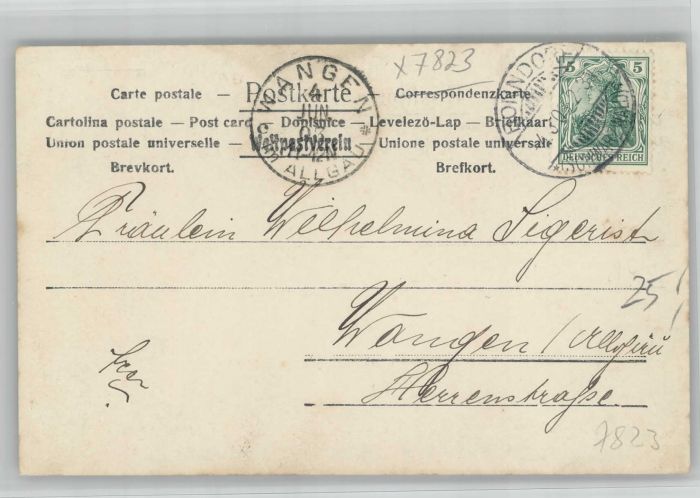 x 7823
Carte postale — Postkarte — Correspondenzkarte
Cartolina postale — Post card — Dopisnice — Levelező-Lap — Briefkaart
Union postale universelle — Weltpostverein — Unione postale universale
Brevkort. Brefkort.
WANGEN
4
JUN
11-12N
ALLGÄU
5 5
DEUTSCHES REICH
Fräulein Wilhelmina Sigerist
25
Wangen / Allgäu
Herrenstraße.
7823